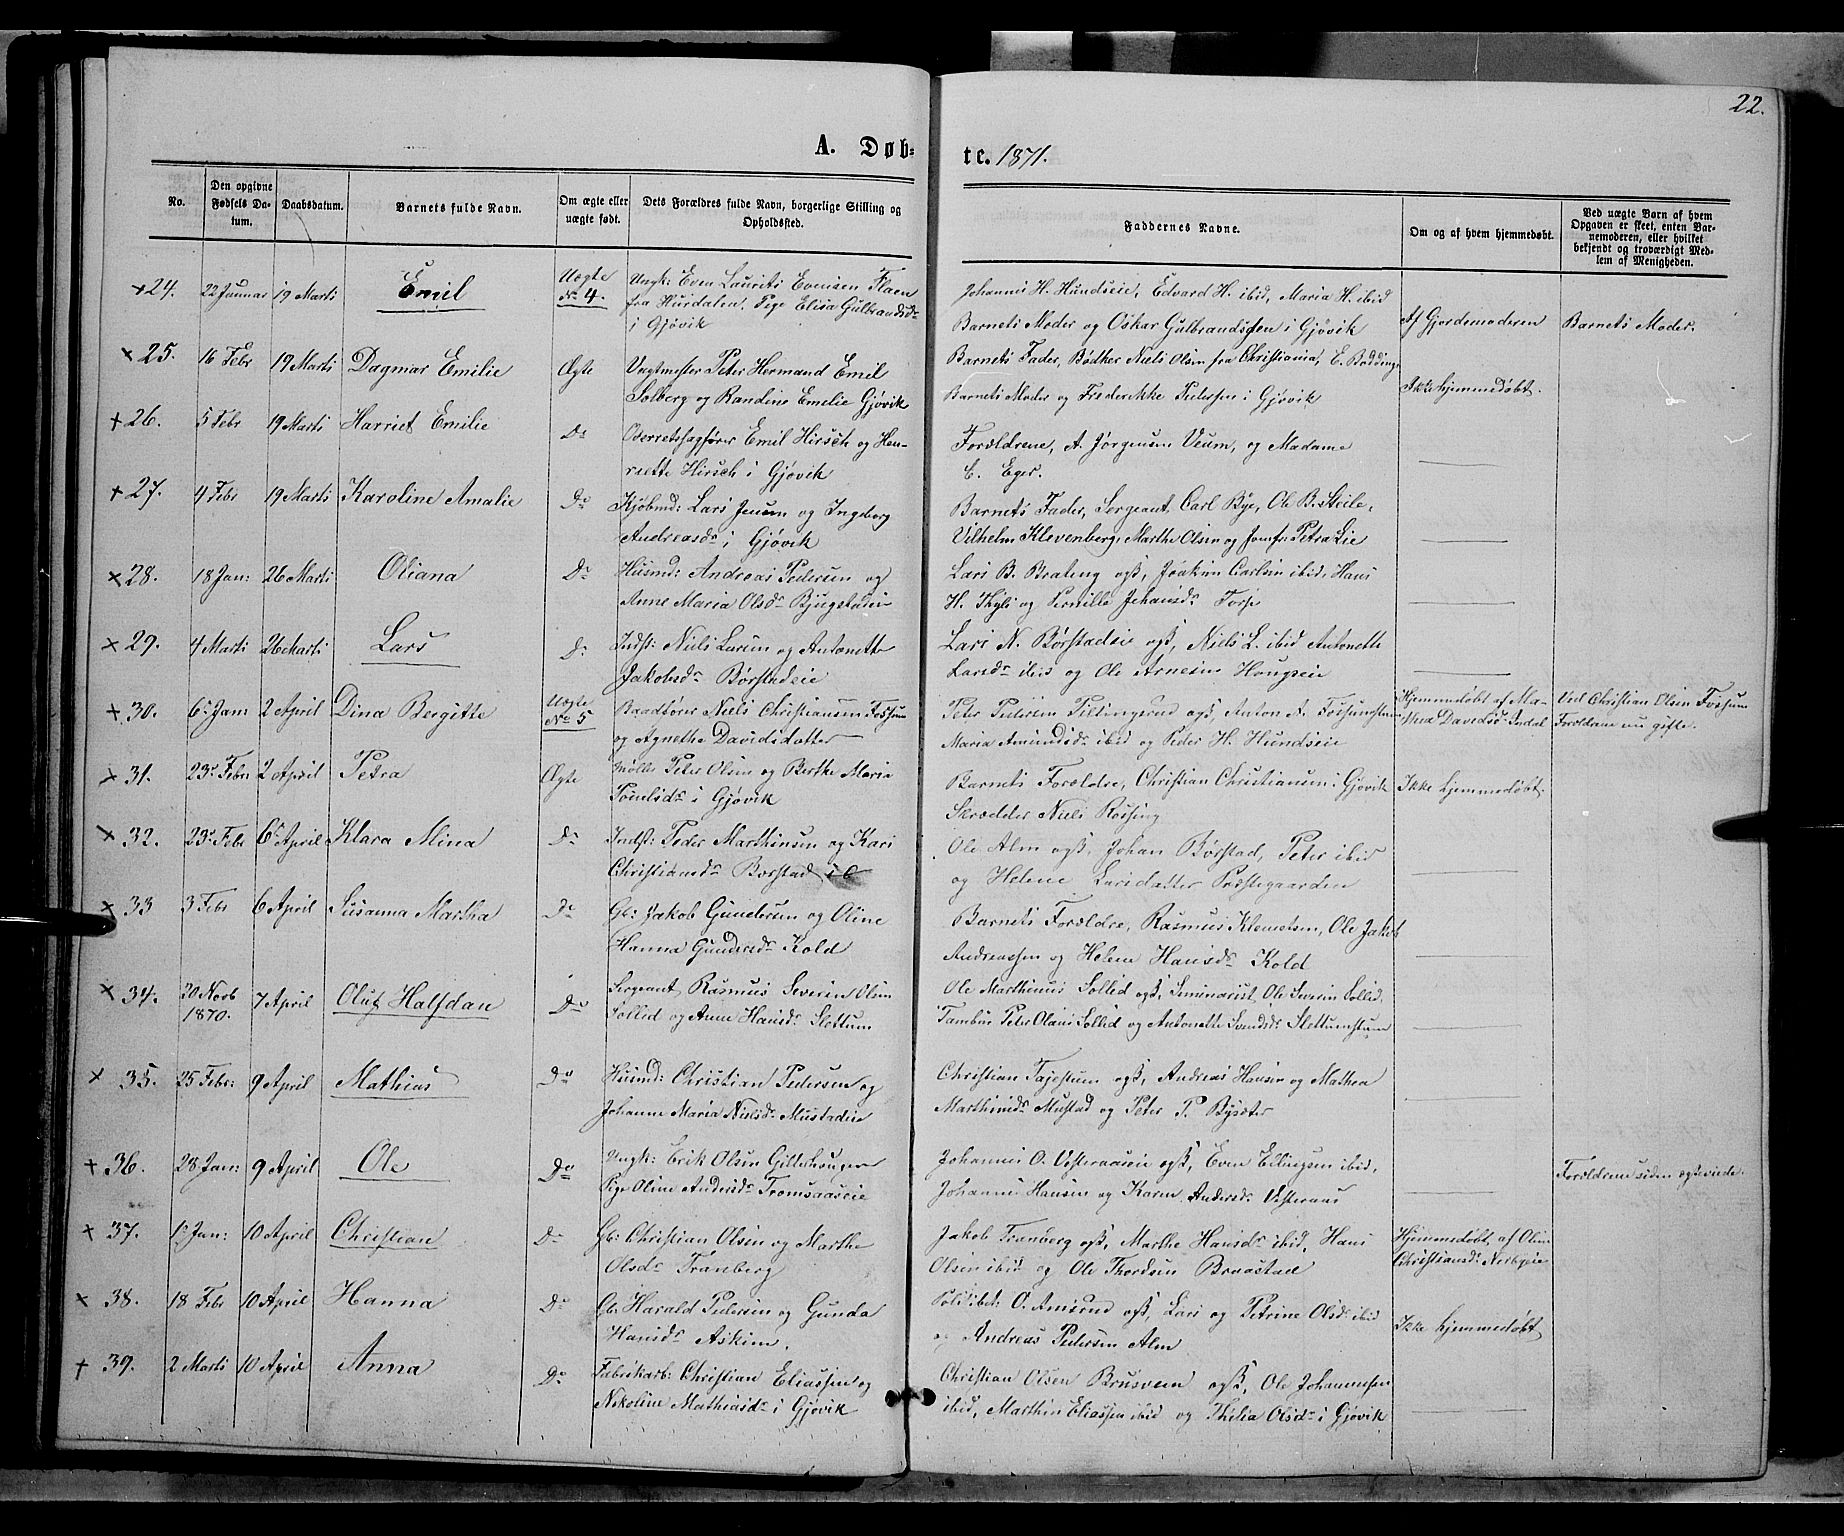 22.
A. Døb-
te. 1871.
No.
Den opgivne
Fødsels Da-
tum.
Daabsdatum.
Barnets fulde Navn.
Om ægte eller
uægte født.
Dets Forældres fulde Navn, borgerlige Stilling og
Opholdssted.
Faddernes Navne.
Om og af hvem hjemmedøbt.
Ved uægte Børn af hvem
Opgaven er skeet, enten Bar-
nemoderen, eller hvilket
bekjendt og troværdigt Med-
lem af Menigheden.
24. 22 Januar 19 Marts Emil Uægte No 4.
Ungk: Even Laurits Evensen Flaen
fra Hurdalen, Pige Elisa Gulbrandsdr
i Gjøvik
Johannes H. Hundseie, Edvard H. ibid, Maria H. ibid
Barnets Moder og Oskar Gulbrandsen i Gjøvik
Af Gjordemoderen
Barnets Moder.
25. 16 Febr 19 Marts Dagmar Emilie Ægte
Vagtmester Peter Hermand Emil
Solberg og Randine Emelie Gjøvik
Barnets Fader, Bødker Niels Olsen fra Christiania, E.
Barnets Moder og Frederikke Pedersen i Gjøvik
Ikke hjemmedøbt.
26. 5 Febr 19 Marts Harriet Emilie Do
Overretssagfører Emil Hirsch og Hen-
riette Hirsch i Gjøvik
Forældrene, A. Jørgensen Veum, og Madame
C. Eger.
27. 4 Febr 19 Marts Karoline Amalie Do
Kjøbmd: Lars Jensen og Ingeborg
Andreasdr i Gjøvik
Barnets Fader, Sergeant Carl Bye, Ole B. Steile,
Vilhelm Klevenberg, Marthe Olsen og Jomfr Petra Lie
28. 18 Jan: 26 Marts Oliana Do
Husmd: Andreas Pedersen og
Anne Maria Olsdr Bjugstadeie
Lars B. Braleng ogs, Joakim Carlsen ibid, Hans
H. Thyli og Pernille Johansdr Torp
29. 4 Marts 26 Marts Lars Do
Indst: Niels Larsen og Antonette
Jakobsdr Børstadeie
Lars N. Børstadeie ogs, Niels L. ibid Antonette
Larsdr ibid og Ole Arnesen Hougseie
30. 6 Jan: 2 April Dina Bergitte Uægte No 5
Baadfører Niels Christiansen Fossum
og Agnethe Davidsdatter
Peter Pedersen ogs, Anton A. Fossumstuen
Maria Amundsdr ibid og Peder H. Hundseie
Hjemmedøbt af Ma-
thea Davidsdr Indal
Ved Christian Olsen Fossum
Forældrene nu gifte.
31. 23 Febr 2 April Petra Ægte
Møller Peter Olsen og Berthe Maria
i Gjøvik
Barnets Forældre, Christian Christiansen i Gjøvik
Skrædder Niels Røssing
Ikke hjemmedøbt
32. 23 Feb 6 April Klara Mina Do
Indst: Peder Marthinsen og Kari
Christiansdr Børstad
Ole Alm ogs, Johan Børstad, Peter ibid
og Helene Larsdatter Præstegaarden
33 3 Febr 6 April Susanna Martha Do
Gb: Jakob Gundersen og Oline
Hanna Gundersdr Kold
Barnets Forældre, Rasmus Klemetsen, Ole Jakob
Andreassen og Helene Hansdr Kold
34. 30 Novb 1870. 7 April Oluf Halfdan Do
Sergeant Rasmus Severin Olsen
Sollid og Anne Hansdr Slettum
Ole Marthinus Sollid ogs, Seminarist Ole Severin Sollid,
Tambur Peter Olaus Sollid og Antonette Svendsdr Slettumstuen
35. 25 Febr: 9 April Mathias Do
Husmd: Christian Pedersen og
Johanne Maria Nielsdr Mustadeie
Christian ogs, Andreas Hansen og Mathea
Marthinsdr Mustad og Peter P. Bysæter
36. 28 Jan: 9 April Ole Do
Ungk: Erik Olsen Gillehaugen
Pige Oline Andersdr Tromsaaseie
Johannes O. Vesteraaseie ogs, Even Ellingsen ibid,
Johannes Hansen og Karen Andersdr Vesteraas
Forældrene siden ogs viede.
37. 1 Jan: 10 April Christian Do
Gb: Christian Olsen og Marthe
Olsdr Tranberg
Jakob Tranberg ogs, Marthe Hansdr ibid, Hans
Olsen ibid og Ole Thordsen Braastad
Hjemmedøbt af Oline
Christiansdr Nerbyeie
38. 18 Febr 10 April Hanna Do
Gb: Harald Pedersen og Gunda
Hansdr Askim.
Politibet: O. Amsrud ogs, Lars og Petrine Olsdr ibid
og Andreas Pedersen Alm
Ikke hjemmedøbt
39. 2 Marts 10 April Anna Do
Fabrikarb: Christian Eliassen og
Nikoline Mathiasdr i Gjøvik
Christian Olsen Brusveen ogs, Ole Johannesen
ibid, Marthin Eliassen ibid og Thilia Olsdr i Gjøvik